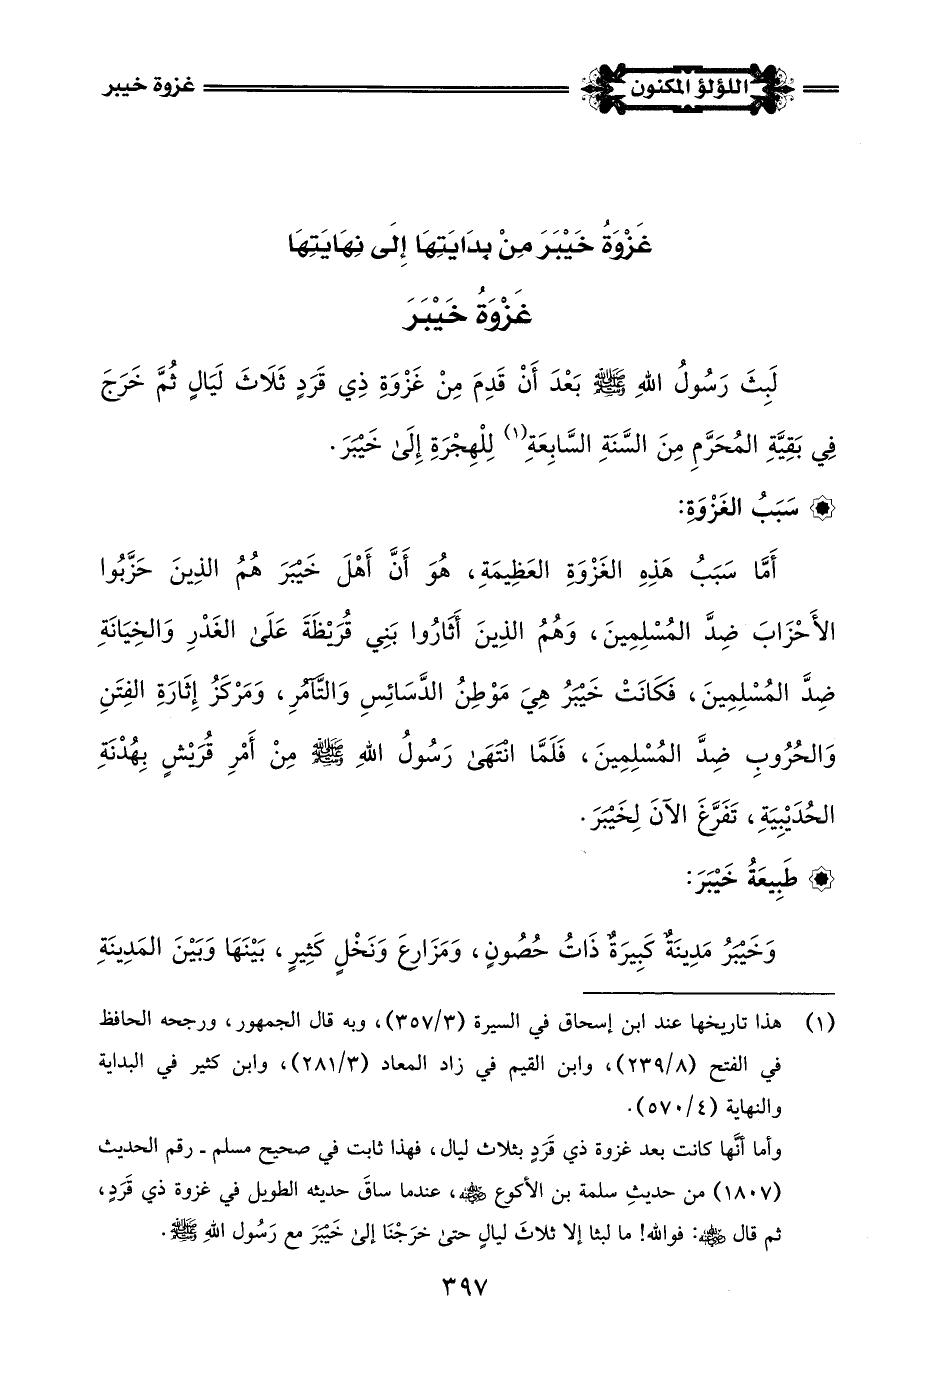 اللؤلؤ المكنون
غزوة خيبر
غَزْوَةُ خَيْبَرَ مِنْ بِدَايَتِهَا إِلَى نِهَايَتِهَا
غَزْوَةُ خَيْبَرَ
لَبِثَ رَسُولُ اللهِ ﷺ بَعْدَ أَنْ قَدِمَ مِنْ غَزْوَةِ ذِي قَرَدٍ ثَلَاثَ لَيَالٍ ثُمَّ خَرَجَ
فِي بَقِيَّةِ المُحَرَّمِ مِنَ السَّنَةِ السَّابِعَةِ(١) لِلْهِجْرَةِ إِلَىٰ خَيْبَرَ.
سَبَبُ الغَزْوَةِ:
أَمَّا سَبَبُ هَذِهِ الغَزْوَةِ العَظِيمَةِ، هُوَ أَنَّ أَهْلَ خَيْبَرَ هُمُ الذِينَ حَزَّبُوا
الأَحْزَابَ ضِدَّ المُسْلِمِينَ، وَهُمُ الذِينَ أَثَارُوا بَنِي قُرَيْظَةَ عَلَىٰ الغَدْرِ وَالخِيَانَةِ
ضِدَّ المُسْلِمِينَ، فَكَانَتْ خَيْبَرُ هِيَ مَوْطِنُ الدَّسَائِسِ وَالتَّآمُرِ، وَمَرْكَزُ إِثَارَةِ الفِتَنِ
وَالحُرُوبِ ضِدَّ المُسْلِمِينَ، فَلَمَّا انْتَهَىٰ رَسُولُ اللهِ ﷺ مِنْ أَمْرِ قُرَيْشٍ بِهُدْنَةِ
الحُدَيْبِيَةِ، تَفَرَّغَ الآنَ لِخَيْبَرَ.
طَبِيعَةُ خَيْبَرَ:
وَخَيْبَرُ مَدِينَةٌ كَبِيرَةٌ ذَاتُ حُصُونٍ، وَمَزَارِعَ وَنَخْلٍ كَثِيرٍ، بَيْنَهَا وَبَيْنَ المَدِينَةِ
(١) هذا تاريخها عند ابن إسحاق في السيرة (٣٥٧/٣)، وبه قال الجمهور، ورجحه الحافظ
في الفتح (٢٣٩/٨)، وابن القيم في زاد المعاد (٢٨١/٣)، وابن كثير في البداية
والنهاية (٥٧٠/٤).
وأما أنَّها كانت بعد غزوة ذي قَرَدٍ بثلاث ليال، فهذا ثابت في صحيح مسلم ـ رقم الحديث
(١٨٠٧) من حديثِ سلمة بن الأكوع ﷺ، عندما ساقَ حديثه الطويل في غزوة ذي قَرَدٍ،
ثم قال ﷺ: فوالله! ما لبثا إلا ثلاثَ ليالٍ حتىٰ خرجْنَا إلىٰ خَيْبَرَ مع رَسُولِ اللهِ ﷺ.
٣٩٧